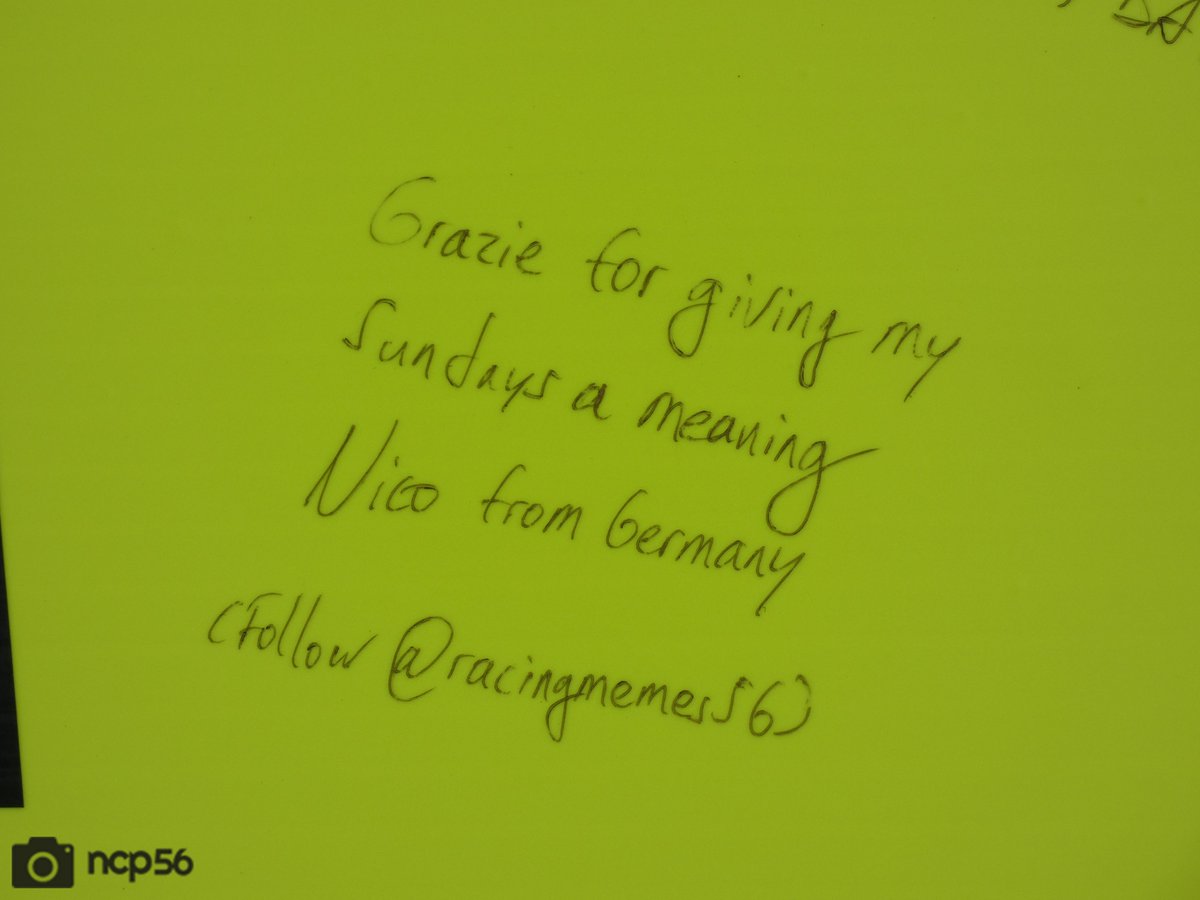 Grazie for giving my
Sundays a meaning
Nico from Germany
(Follow @racingmemes56)
ncp56